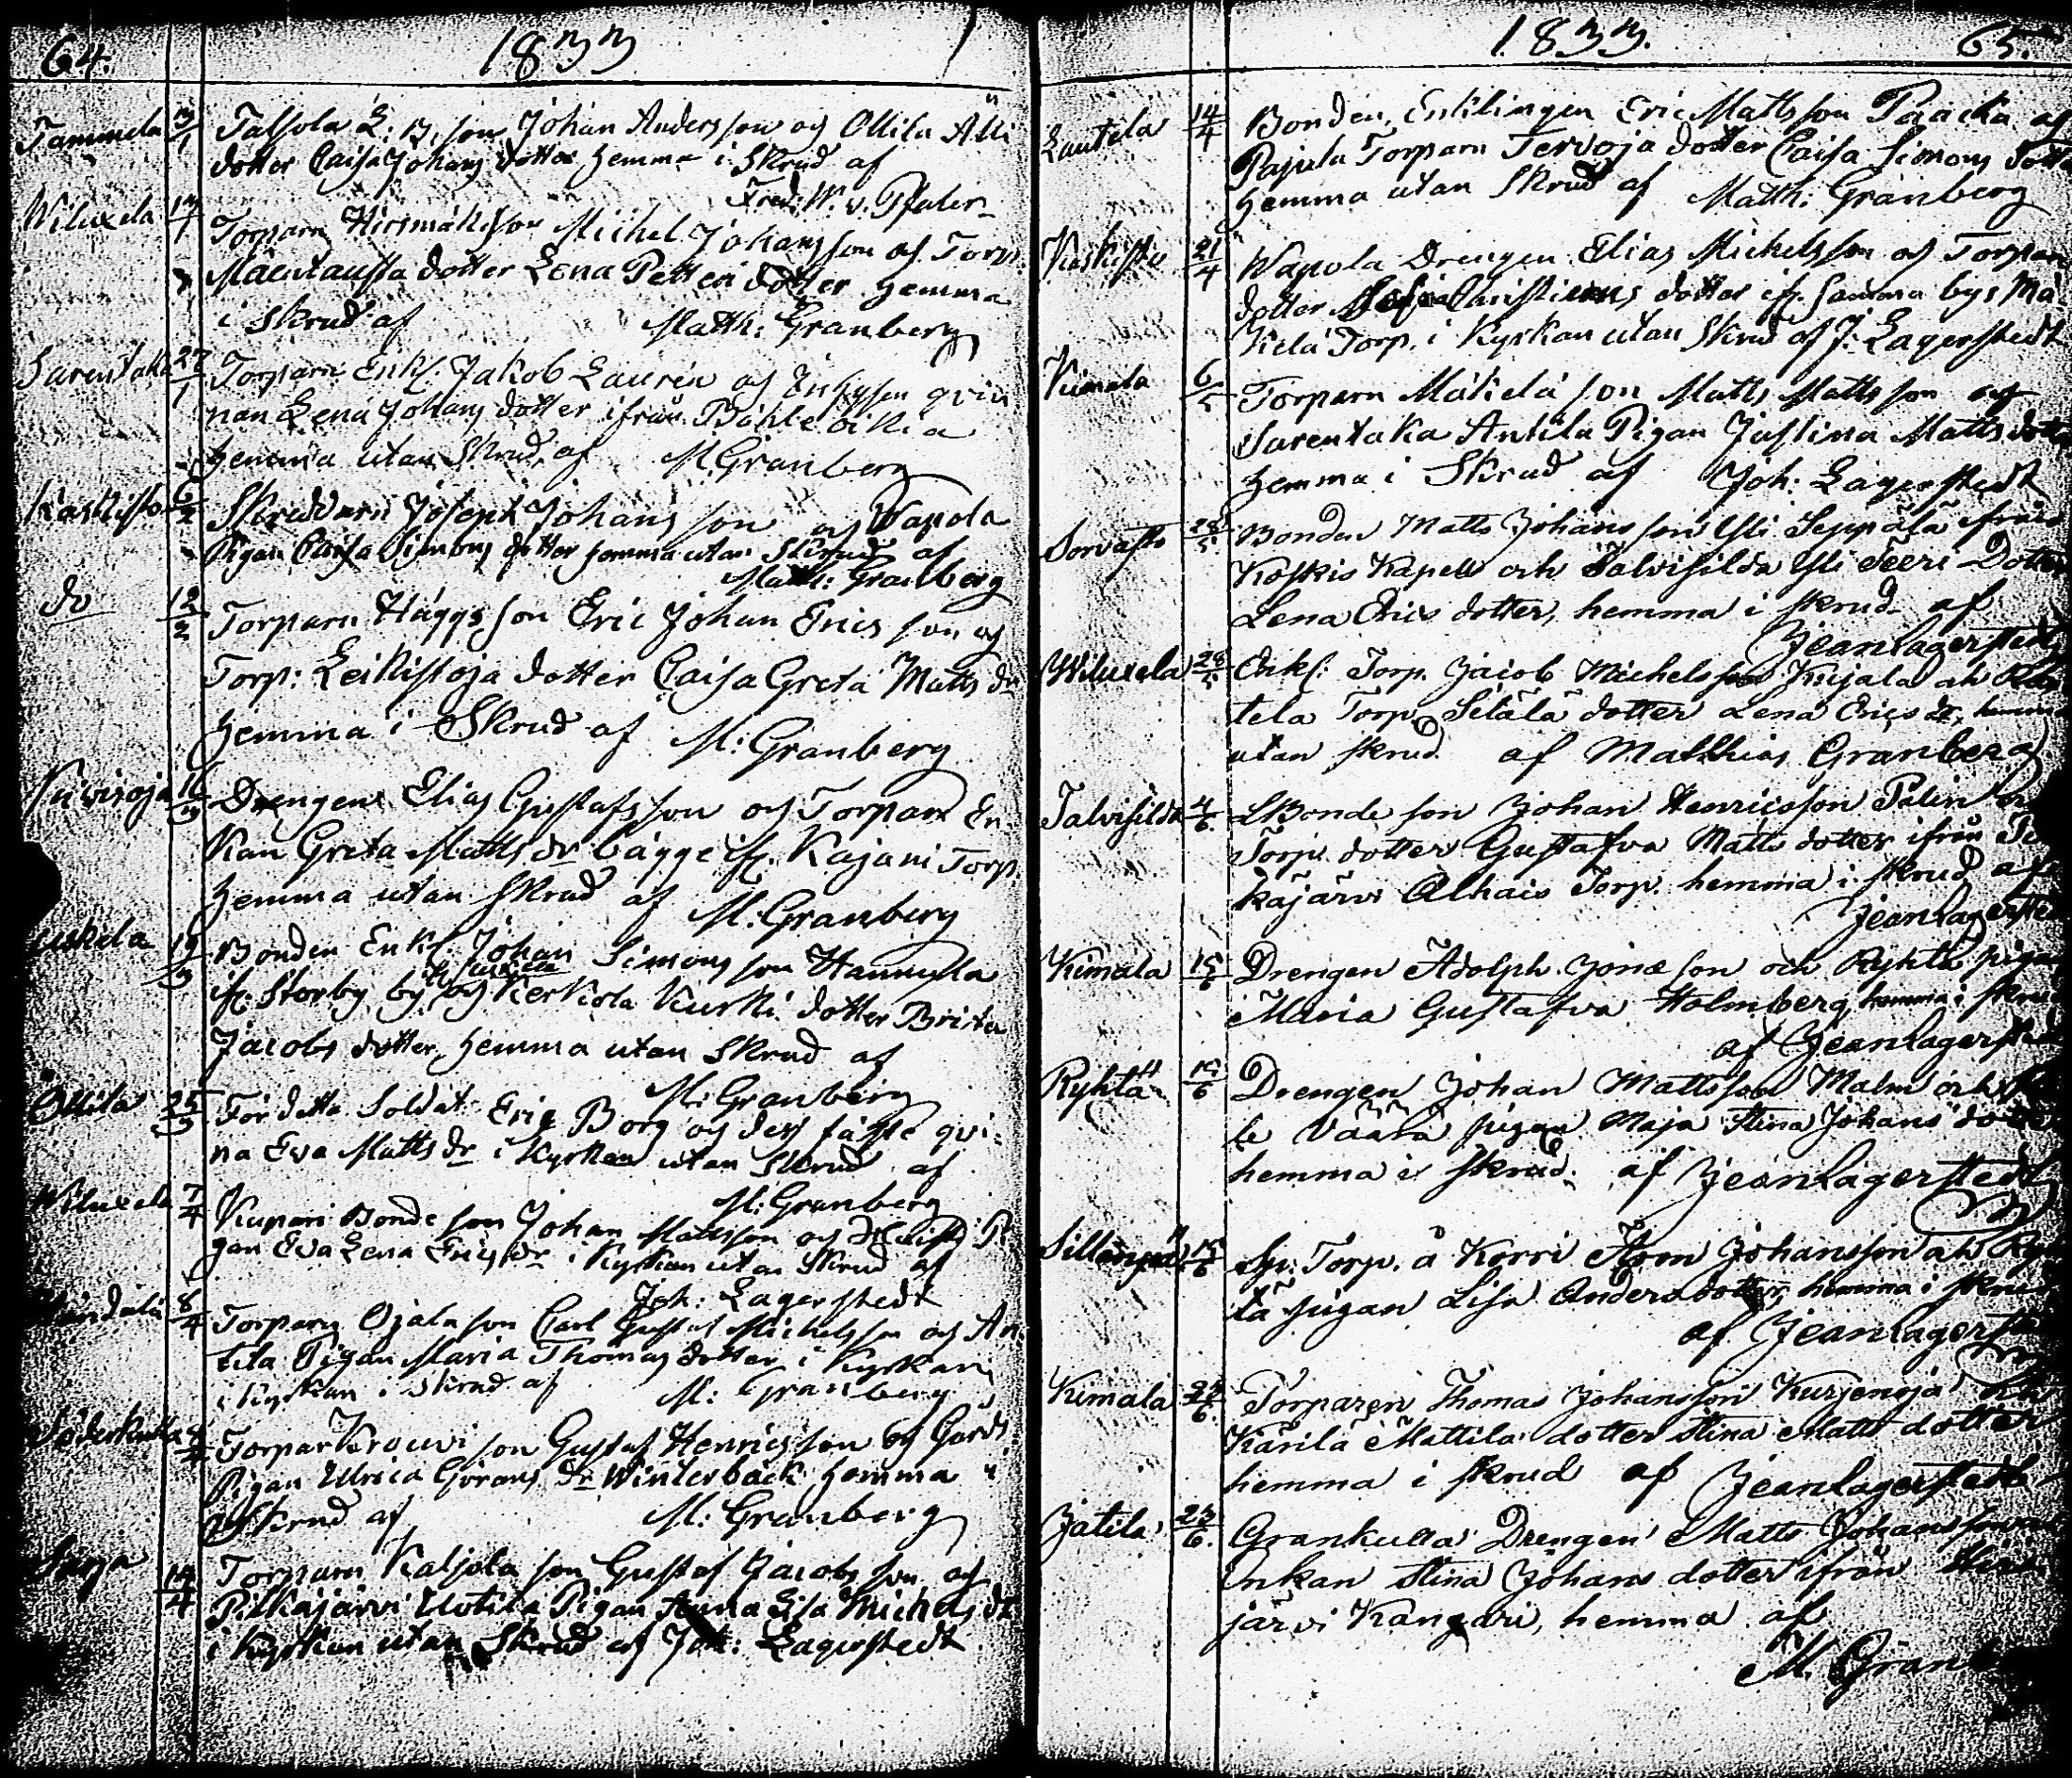 64.
1833
Tammela 13/1 Talsola L: B. son Johan Andersson og Ollila Alli
dotter Caisa Johans dotter hemma i Skrud af
Fred: W. v. Pfaler-
Wiluxela 17/1 Torparn Hirsmäki son Michel Johansson og Torp:
Mäentausta dotter Lena Petteri dotter hemma
i Skrud af Matth: Granberg
Sarentaka 27/1 Torparn Enkl: Jakob Laurén og Inhyses qvin
nan Lena Johans dotter ifrån
hemma utan Skrud af M. Granberg
Kaskisto 6/2 Skreddarn Joseph Johans son og Wapola
Pigan Caisa Simons dotter hemma utan Skrud af
Matth: Granberg
do 12/2 Torparn Häggs son Eric Johan Erics son og
Torp: Leikkistoja dotter Caisa Greta Matts dr
hemma i Skrud af M: Granberg
16/3 Drengen Elias Gustafsson og Torpare En
kan Greta Matts dr bägge if. Kajani Torp.
hemma utan Skrud af M: Granberg
Uskela 19/3 Bonden Enkl: Johan Simons son Hannula
if: Storby by og Kerkola Kurki dotter Brita
Jacobs dotter, hemma utan Skrud af
M: Granberg
Ollila 25/3 För detta Soldat Eric Borg og dess fäste qvi-
na Eva Matts dr i Kyrkan utan Skrud af
M: Granberg
Wiluxela 7/4 Kupari Bonde son Johan Mattsson og Pi
gan Eva Lena Erics dr i Kyrkan utan Skrud af
Joh: Lagerstedt
8/4 Torparn Ojala son Carl Gustaf Michelsson og An
tila Pigan Maria Thomas dotter i Kyrkan
i Kyrkan i Skrud af M: Granberg
Söderkulla Torpar Krouvi son Gustaf Henricsson og Gårds
Pigan Ulrica Görans dr Winterbäck hemma
i Skrud af M: Granberg
14/4 Torparn Kaljola son Gustaf Jacobs son og
Pitkäjärvi Uotila Pigan Anna Lisa Michels dr
i Kyrkan utan Skrud af Joh: Lagerstedt
1833.
65.
Lautela 14/4 Bonden, Enklingen Eric Mattsson Paacka og
Pajula Torparn Tervoja dotter Caisa Simons dott
hemma utan Skrud af Matth: Granberg
Kaskisto 21/4 Wapola Drengen Elias Michelsson og Torpar
dotter Christians dotter if. samma bys Mä
kelä Torp. i Kyrkan utan Skrud af J: Lagerstedt
Kimala 6/5 Torparn Mäkelä son Matts Mattsson og
Sarentaka Antila Pigan Justina Matts dot
hemma i Skrud af Joh: Lagerstedt
Sorvasto 28/5 Bonden Matts Johansson Yli Seppälä ifrån
Koskis Kapell och Talvisilda Yli Teeri Dotter
Lena Erics dotter, hemma i skrud af
Jean Lagerstedt
Wiluxela 28/5 Enkl: Torp. Jacob Michelsson Kujala och
tela Torp. Setälä dotter Lena Erics dr, hemma
utan skrud af Matthias Granberg
Talvisilda 4/6. Bonde son Johan Henricsson Palin
Torp. dotter Gustafva Matts dotter ifrån
käjärvi Alhais Torp. hemma i skrud af
Jean Lagerste
Kimala 15/6 Drengen Adolph Jonæ son och Ryhtä pigan
Maria Gustafva Holmberg hemma i skrud
af Jean Lagerste
Ryhtä Drengen Johan Mattsson Malm och
le Väärä pigan Maja Stina Johans dotter
hemma i skrud af Jean Lagerstedt
Sillanpää Torp. å Korri Aron Johansson och Ryh
tä pigan Lisa Anders dotter, hemma i skrud
af Jean Lagerste
Kimala 24/6. Torparen Thomas Johansson Kurjenoja
Kärilä Mattila dotter Stina Matts dotter
hemma i skrud af Jean Lagerstedt
Jatila 23/6. Grankulla Drengen Matts Johansson
Enkan Stina Johans dotter ifrån
järvi Kangari, hemma af
M. Granb